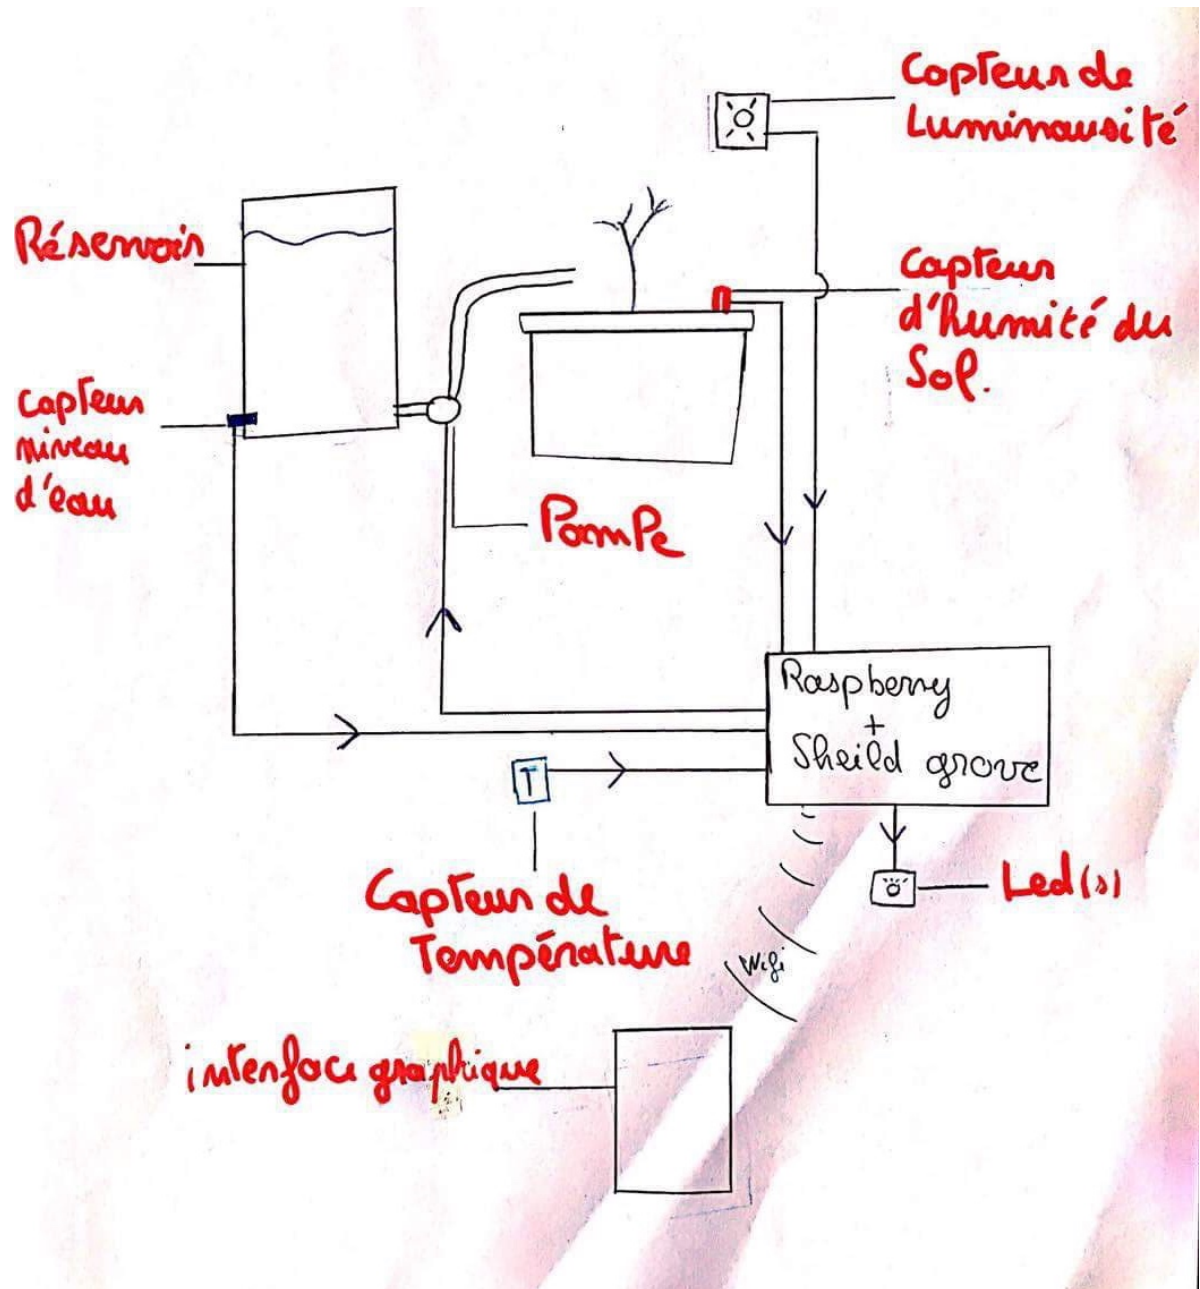 Capteur de
Luminousité
Réservoir
Capteur
d'humité du
Sol.
Capteur
niveau
d'eau
Pompe
Raspberry
+
Sheild grove
T
Capteur de
Température
Led(s)
Wifi
interface graphique